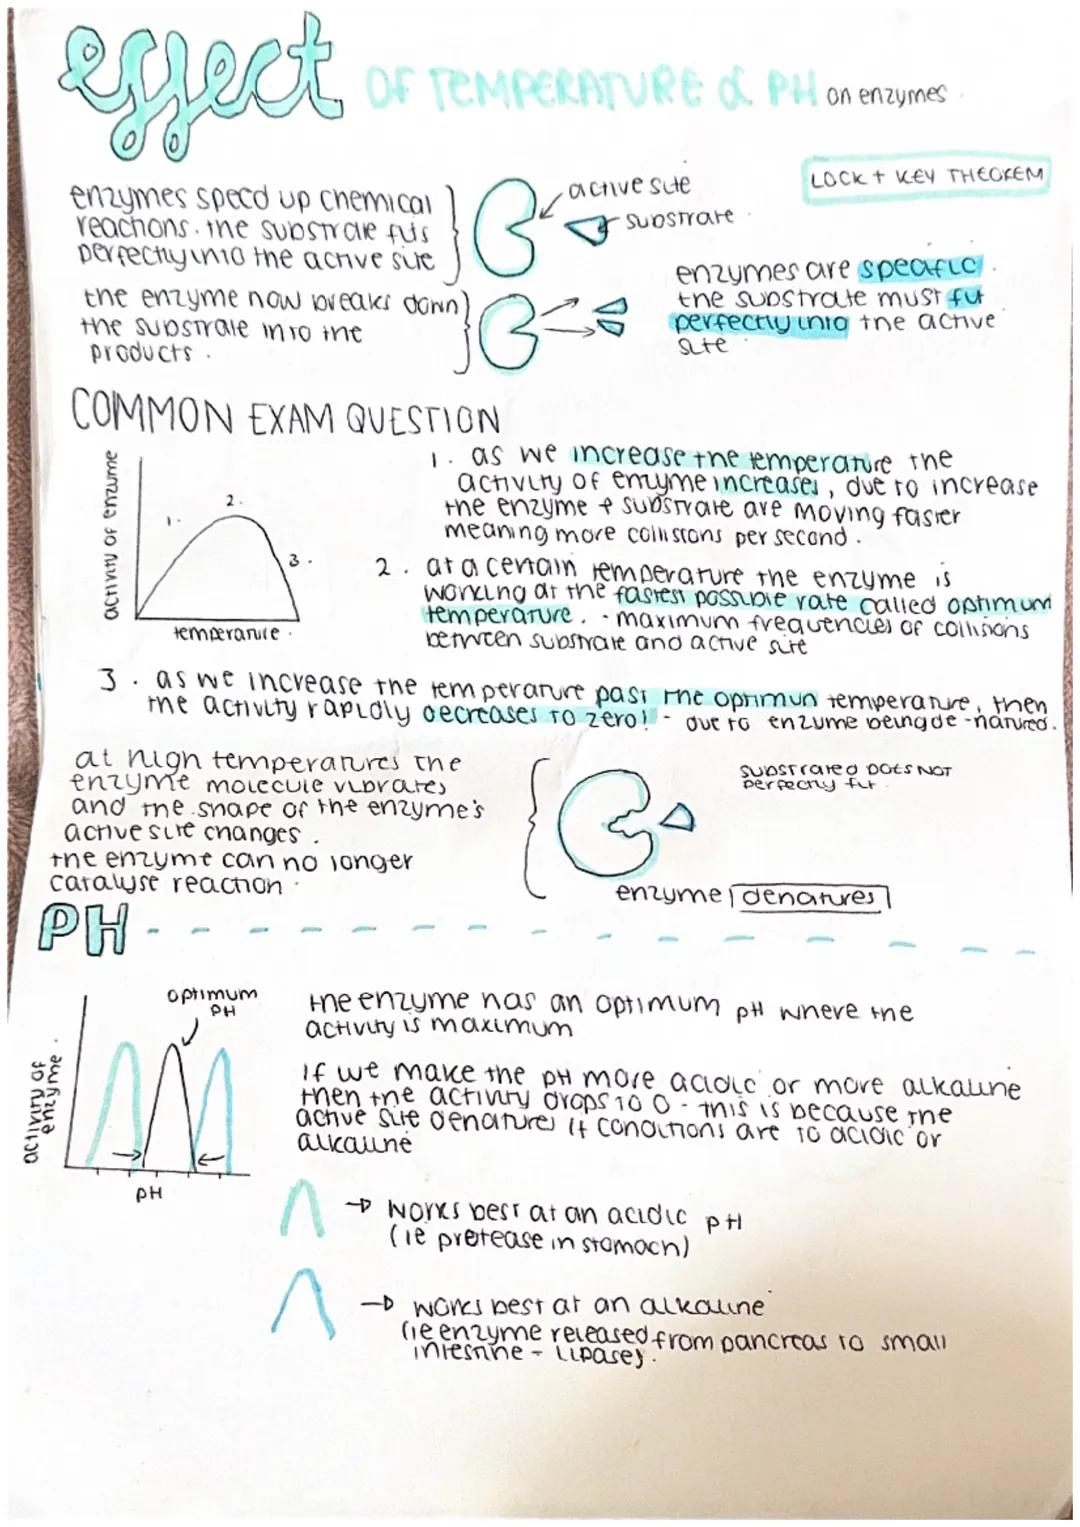 effect OF TEMPERATURE & PH on enzymes.
LOCK + KEY THEOREM
enzymes speed up chemical
reactions. the substrate fits
perfectly into the active site
active site
substrate
the enzyme now breaks down
the substrate into the
products.
enzymes are specific.
the substrate must fit
perfectly into the active
site
COMMON EXAM QUESTION
activity of enzyme
1.
2.
3.
temperature.
1. as we increase the temperature the
activity of enzyme increases, due to increase
the enzyme + substrate are moving faster
meaning more collisions per second.
2. at a certain temperature the enzyme is
working at the fastest possible rate called optimum
temperature. - maximum frequencies of collisions
between substrate and active site
3. as we increase the temperature past the optimun temperature, then
the activity rapidly decreases to zero! - due to enzume being de-natured.
at high temperatures the
enzyme molecule vibrates
and the shape of the enzyme's
active site changes.
the enzyme can no longer
catalyse reaction.
substrated DOES NOT
perfectly fit.
enzyme denatures
PH
optimum
PH
activity of
enzyme.
PH
the enzyme has an optimum pH where the
activity is maximum
If we make the pH more acidic or more alkaline
then the activity drops to 0 - this is because the
active site denatures if conditions are to acidic or
alkaline
→ works best at an acidic pH
(ie protease in stomach)
→ works best at an alkaline
(ie enzyme released from pancreas to small
intestine - lipase).